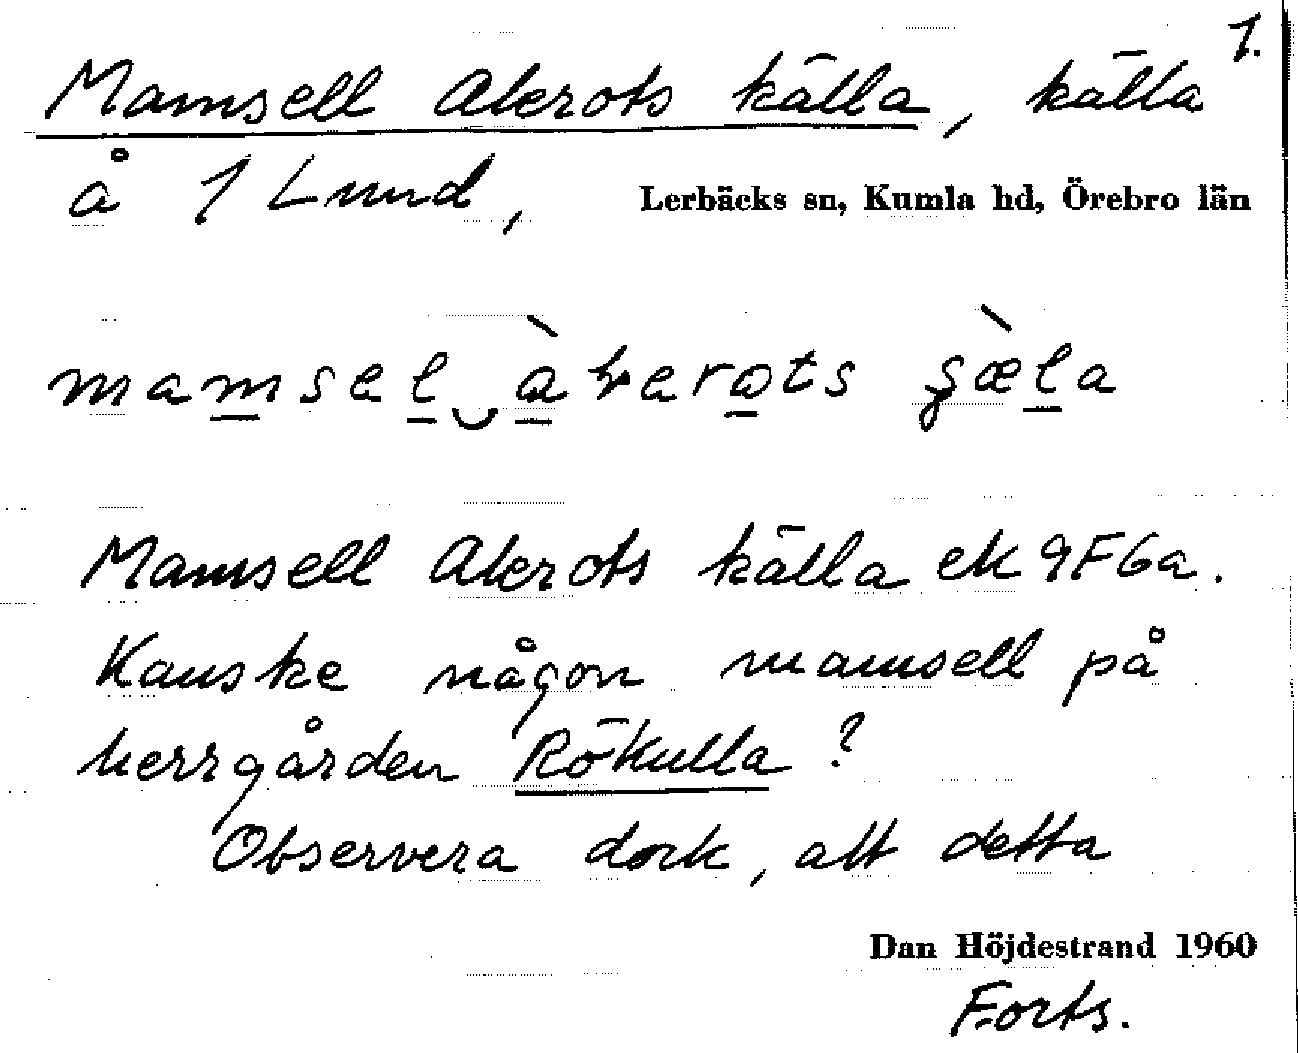 1.
Mamsell Akrots källa, källa
å 1 Lund, Lerbäcks sn, Kumla hd, Örebro län
mamsel
Mamsell Akrots källa ek 9F6a.
Kanske någon mamsell på
herrgården Rökulla?
Observera dock, att detta
Dan Höjdestrand 1960
Forts.